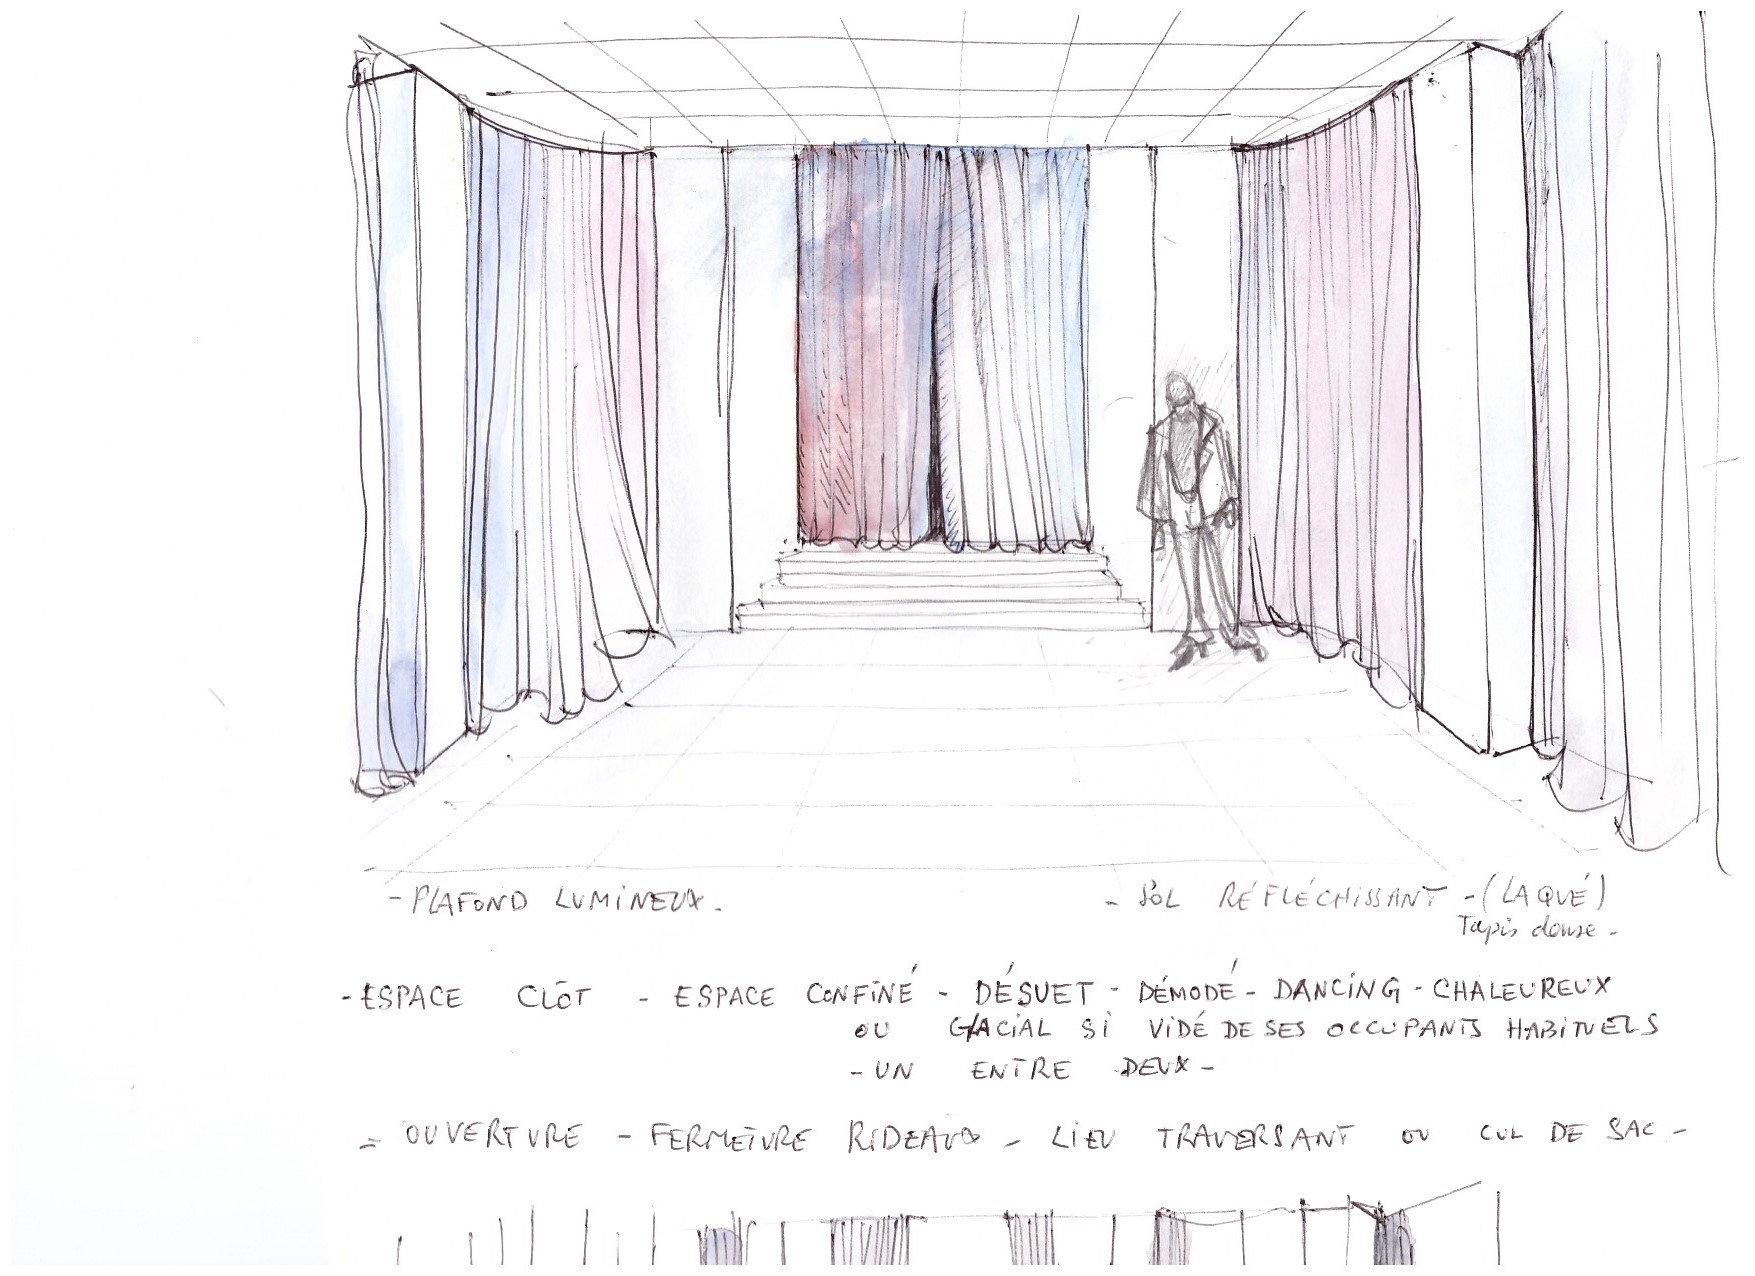 - PLAFOND LUMINEUX -
- SOL RÉFLÉCHISSANT - (LAQUÉ)
Tapis danse -
- ESPACE CLÔT - ESPACE CONFINÉ - DÉSUET - DÉMODÉ - DANCING - CHALEUREUX
OU GLACIAL SI VIDÉ DE SES OCCUPANTS HABITUELS
- UN ENTRE DEUX -
- OUVERTURE - FERMETURE RIDEAUX - LIEU TRAVERSANT OU CUL DE SAC -